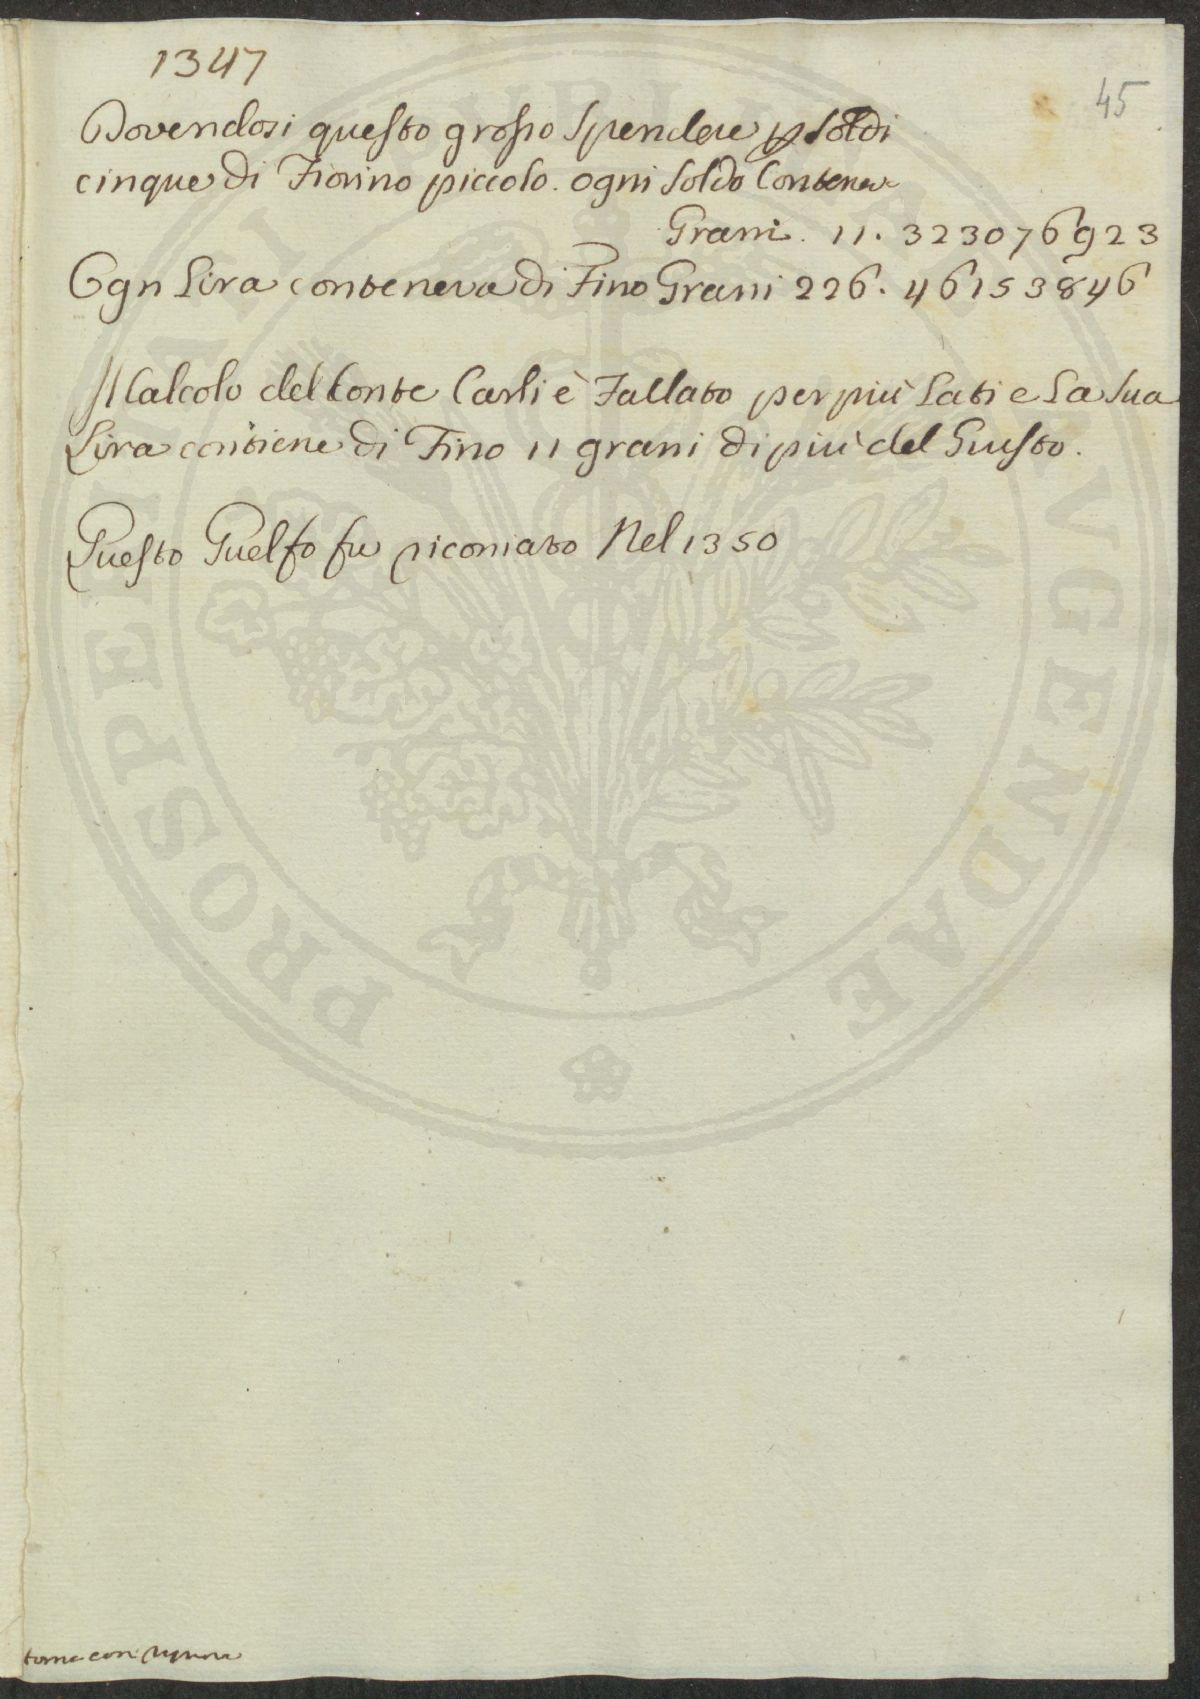 1347
45
Dovendosi questo grosso Spendere p Soldi
cinque di Fiorino piccolo. ogni Soldo Contenea
Grani. 11. 323076923
Ogn Lira conteneva di Fino Grani 226. 46153846
Il Calcolo del Conte Carli è Fallato per più Lati e La Sua
Lira contiene di Fino 11 grani di più del Giusto.
Questo Guelfo fu riconiato Nel 1350
torna con
PROSPERITATI PUBLICAE AUGENDAE